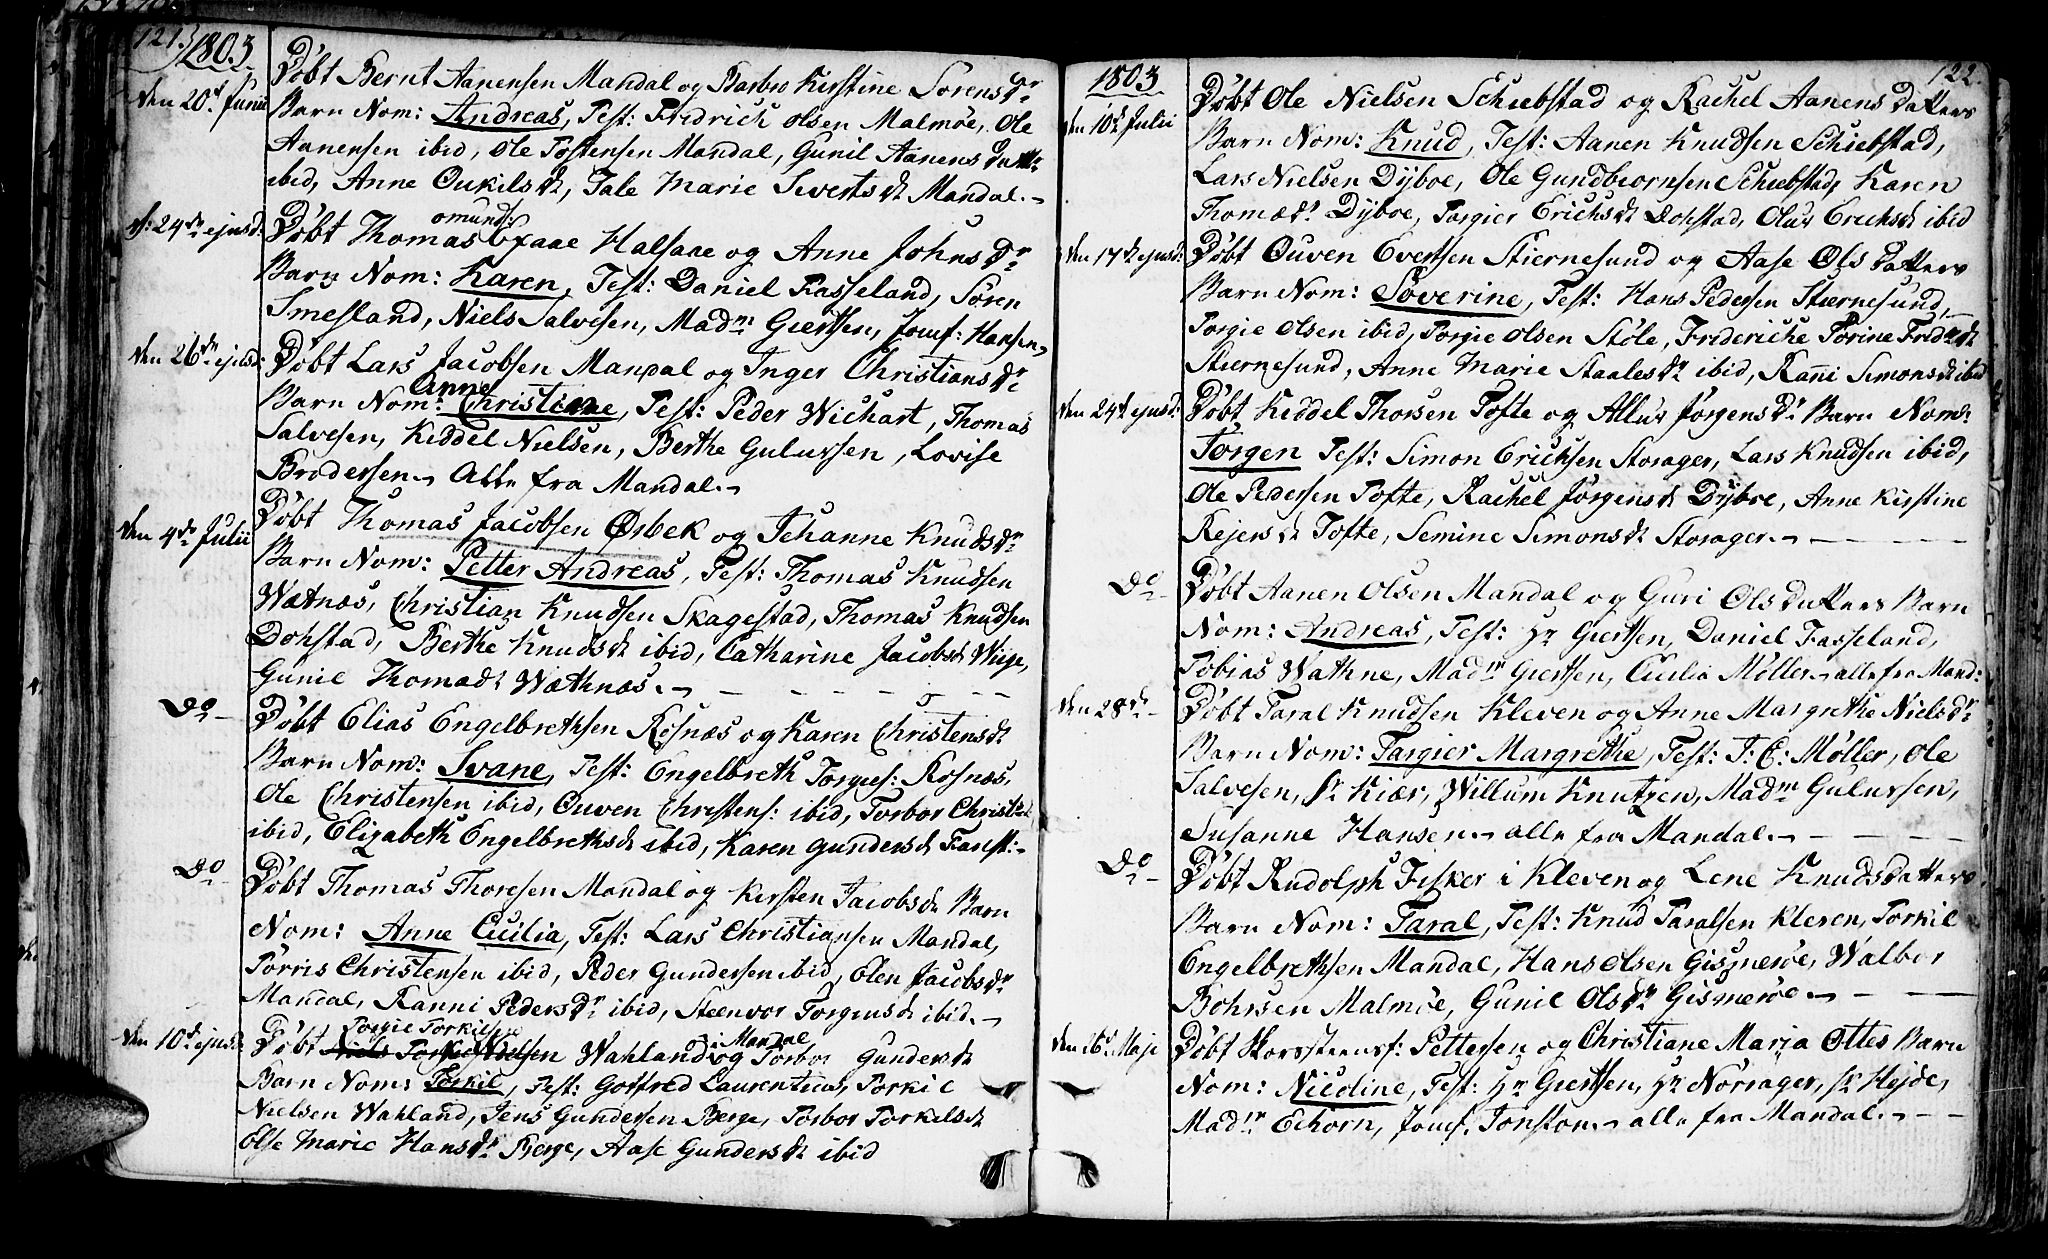 121.
1803
Den 20d Junii
Døbt Bernt Aanensen Mandal og Barbro Kirstine Sørensdr
Barn Nom: Andreas, Test: Fridrich Olsen Malmöe, Ole
Aanensen ibid, Ole Tostensen Mandal, Gunil Aanens datter
ibid, Anne Oukilsdt, Tale Marie Sivertsdt Mandal.
24de ejusd:
omunds:
Døbt Thomas Halsaae og Anne Johnsdr
Barn Nom: Karen, Test: Daniel Fasseland, Søren
Smesland, Niels Salvesen, Madm: Giertsen, Jomf: Hansen,
Den 26de ejusd:
Døbt Lars Jacobsen Mandal og Inger Christiansdr
Anne
Barn Nom: Christiane, Test: Peder Wichart, Thomas
Salvesen, Kiddel Nielsen, Berthe Gulussen, Lovise
Brodersen. Alle fra Mandal.
Den 4de Julii
Døbt Thomas Jacobsen Øsbek og Jehanne Knudsdr
Barn Nom: Petter Andreas, Test: Thomas Knudsen
Wætnæs, Christian Knudsen Skagestad, Thomas Knudsen
Dohstad, Berthe Knudsdt ibid, Catharine Jacobsdt Wiige,
Gunil Thomædt Wæthnæs.
Do
Døbt Elias Engelbrethsen Rosnæs og Karen Christensdt
Barn Nom: Svane, Test: Engelbreth Torgiers: Rosnæs,
Ole Christensen ibid, Ouven Christens: ibid, Torbor Christensdt
ibid, Elizabeth Engelbrethsdt ibid, Karen Gundersdt Fanst:
Do
Døbt Thomas Thoresen Mandal og Kirsten Jacobsdt Barn
Nom: Anne Cicilia, Test: Lars Christiansen Mandal,
Torris Christensen ibid, Peder Gundersen ibid, Elen Jacobsdr
Mandal, Ranni Pedersdr ibid, Steenvor Torgersdt ibid.
Den 10de ejusd:
Torgie Torkilsen
i Mandal
Døbt Niels Wahland og Torbor Gundersdt
Barn Nom: Torkil, Test: Gotfred Laurentius, Torkil
Nielsen Wahland, Jens Gundersen Berge, Torbor Torkelsdt
Else Marie Hansdr Berge, Aase Gundersdt ibid
1803
122.
Den 10de Julii
Døbt Ole Nielsen Schiebstad og Rachel Aanens datters
Barn Nom: Knud, Test: Aanen Knudsen Schiebstad,
Lars Nielsen Dyboe, Ole Gundbiornsen Schiebstad, Karen
Thomædr Dyboe, Torgier Erichsdt Dohstad, Olus Erichsdt ibid
Den 17de ejusd:
Døbt Ouven Evertsen Stiernesund og Aase Ols datters
Barn Nom: Severine, Test: Hans Pedersen Stiernesund,
Torgie Olsen ibid, Torgie Olsen Støle, Frideriche Torine Fridr:dt
Stiernesund, Anne Marie Staalesdr ibid, Ranni Simonsdt ibid
Den 24de ejusd:
Døbt Kiddel Thorsen Tofte og Allus Jørgensdr Barn Nom:
Jørgen Test: Simon Erichsen Storager, Lars Knudsen ibid,
Ole Pedersen Tofte, Rachel Jørgensdt Dyboe, Anne Kirstine
Rejersdt Tofte, Semine Simonsdt Storager.
Do
Døbt Aanen Olsen Mandal og Guri Ols datters Barn
Nom: Andreas, Test: Hr Giertsen, Daniel Fasseland,
Tobias Wathne, Madm Giertsen, Cicilia Möller, alle fra Mand:
Den 28de
Døbt Taral Knudsen Kleven og Anne Margrethe Nielsdr
Barn Nom: Targier Margrethe, Test: J: C: Möller, Ole
Salvesen, Sr Kiær, Willum Knutzen, Madm Gulussen,
Susanne Hansen. alle fra Mandal.
Do
Døbt Rudolph Fisker i Kleven og Lene Knudsdatters
Barn Nom: Taral, Test: Knud Taralsen Kleven, Torkil
Engelbrethsen Mandal, Hans Olsen Gismerøe, Walbor
Bohrsen Malmöe, Gunil Olsdr Gismerøe.
Den 16d Maji
Døbt Skorsteensf: Pettersen og Christiane Maria Ottes Barn
Nom: Nicoline, Test: Hr Giertsen, Hr Norsager, Sr Hejde,
Madm Eihorn, Jomf: Jonston. alle fra Mandal.